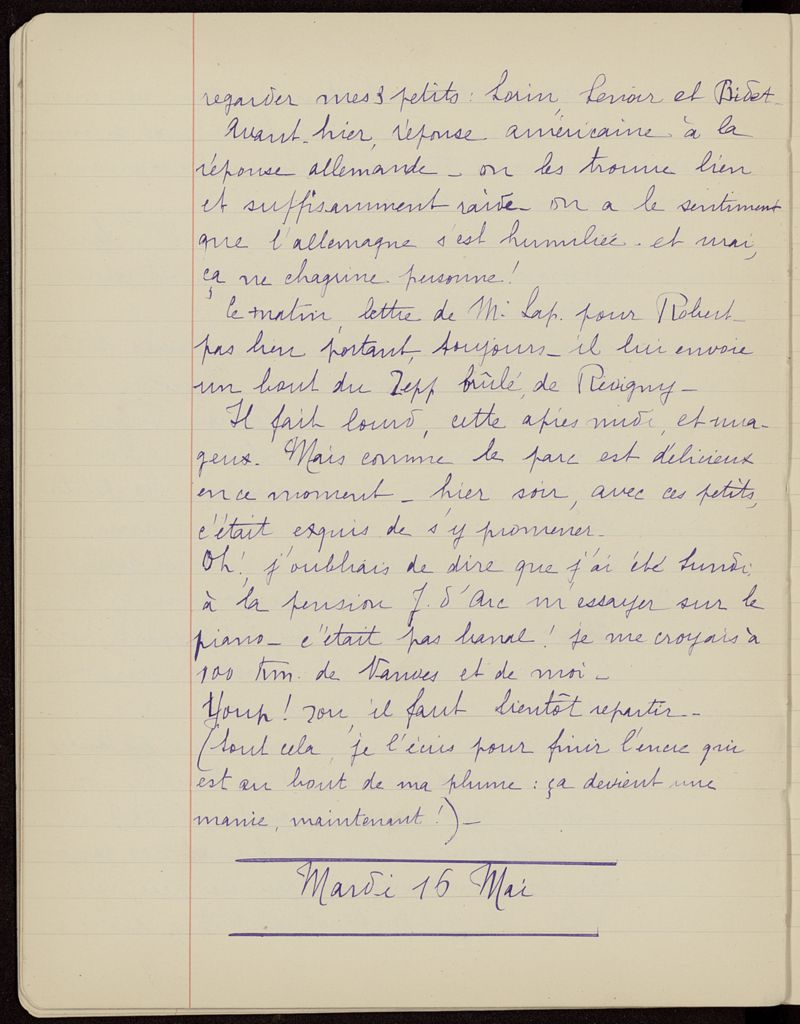 regarder mes 3 petits : Lorin, Lenoir et Bidet.
Avant-hier, réponse américaine à la
réponse allemande _ on les trouve bien
et suffisamment raide _ on a le sentiment
que l'allemagne s'est humiliée. et mai,
ça ne chagrine personne !
Ce matin, lettre de M. Lap. pour Robert _
pas bien portant, toujours _ il lui envoie
un bout du Zepp brûlé, de Révigny _
Il fait lourd, cette après midi, et nua-
geux. Mais comme le parc est délicieux
en ce moment _ hier soir, avec ces petits,
c'était exquis de s'y promener _
Oh !, j'oubliais de dire que j'ai été Lundi,
à la pension J. d'Arc m'essayer sur le
piano _ c'était pas banal ! je me croyais à
100 Km. de Vanves et de moi _
Youp ! zou, il faut bientôt repartir _
(tout cela, je l'écris pour finir l'encre qui
est au bout de ma plume : ça devient une
manie, maintenant !) _
Mardi 16 Mai